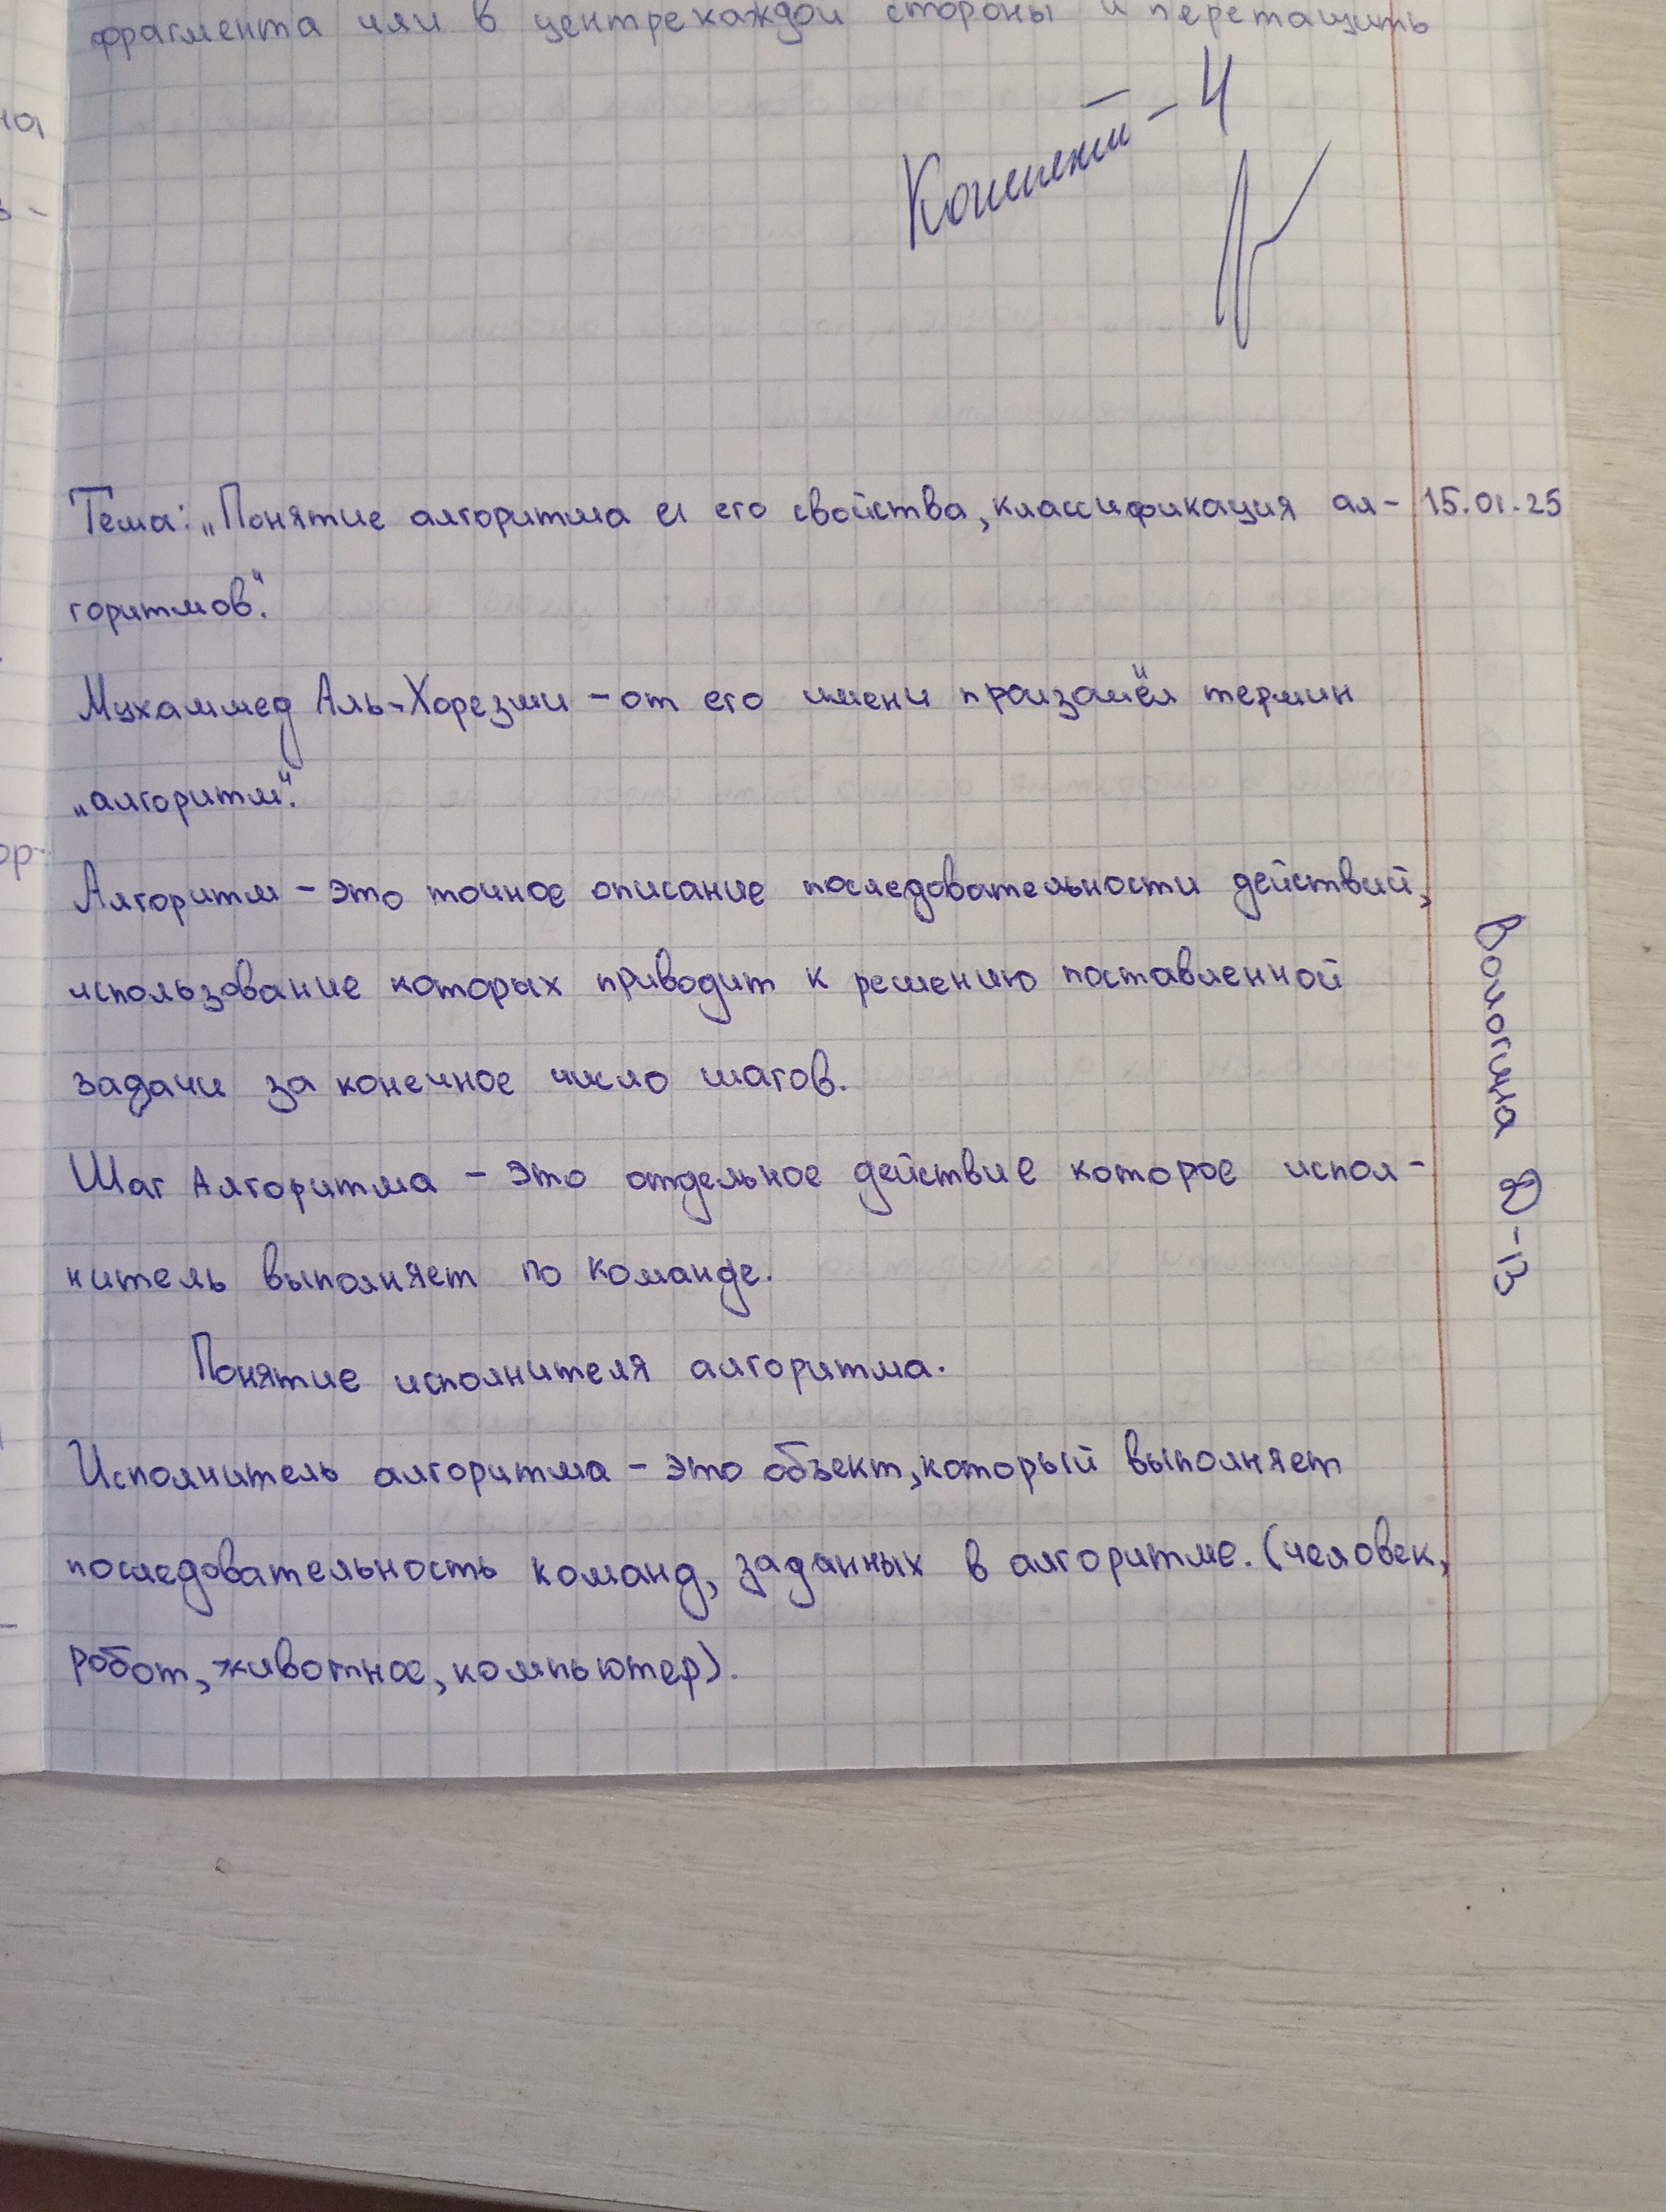 фрагмента или в центрекаждой стороны и перетащить
на
в -
Конспект - 4
Тема: „Понятие алгоритма и его свойства, классификация ал- 15.01.25
горитмов".
Мухаммед Аль-Хорезми - от его имени произошёл термин
„алгоритм".
ор-
Алгоритм - это точное описание последовательности действий,
использование которых приводит к решению поставленной
задачи за конечное число шагов.
Шаг Алгоритма - это отдельное действие которое испол-
нитель выполняет по команде.
Понятие исполнителя алгоритма.
Исполнитель алгоритма - это объект, который выполняет
последовательность команд, заданных в алгоритме. (человек,
робот, животное, компьютер).
Вологина Д-13